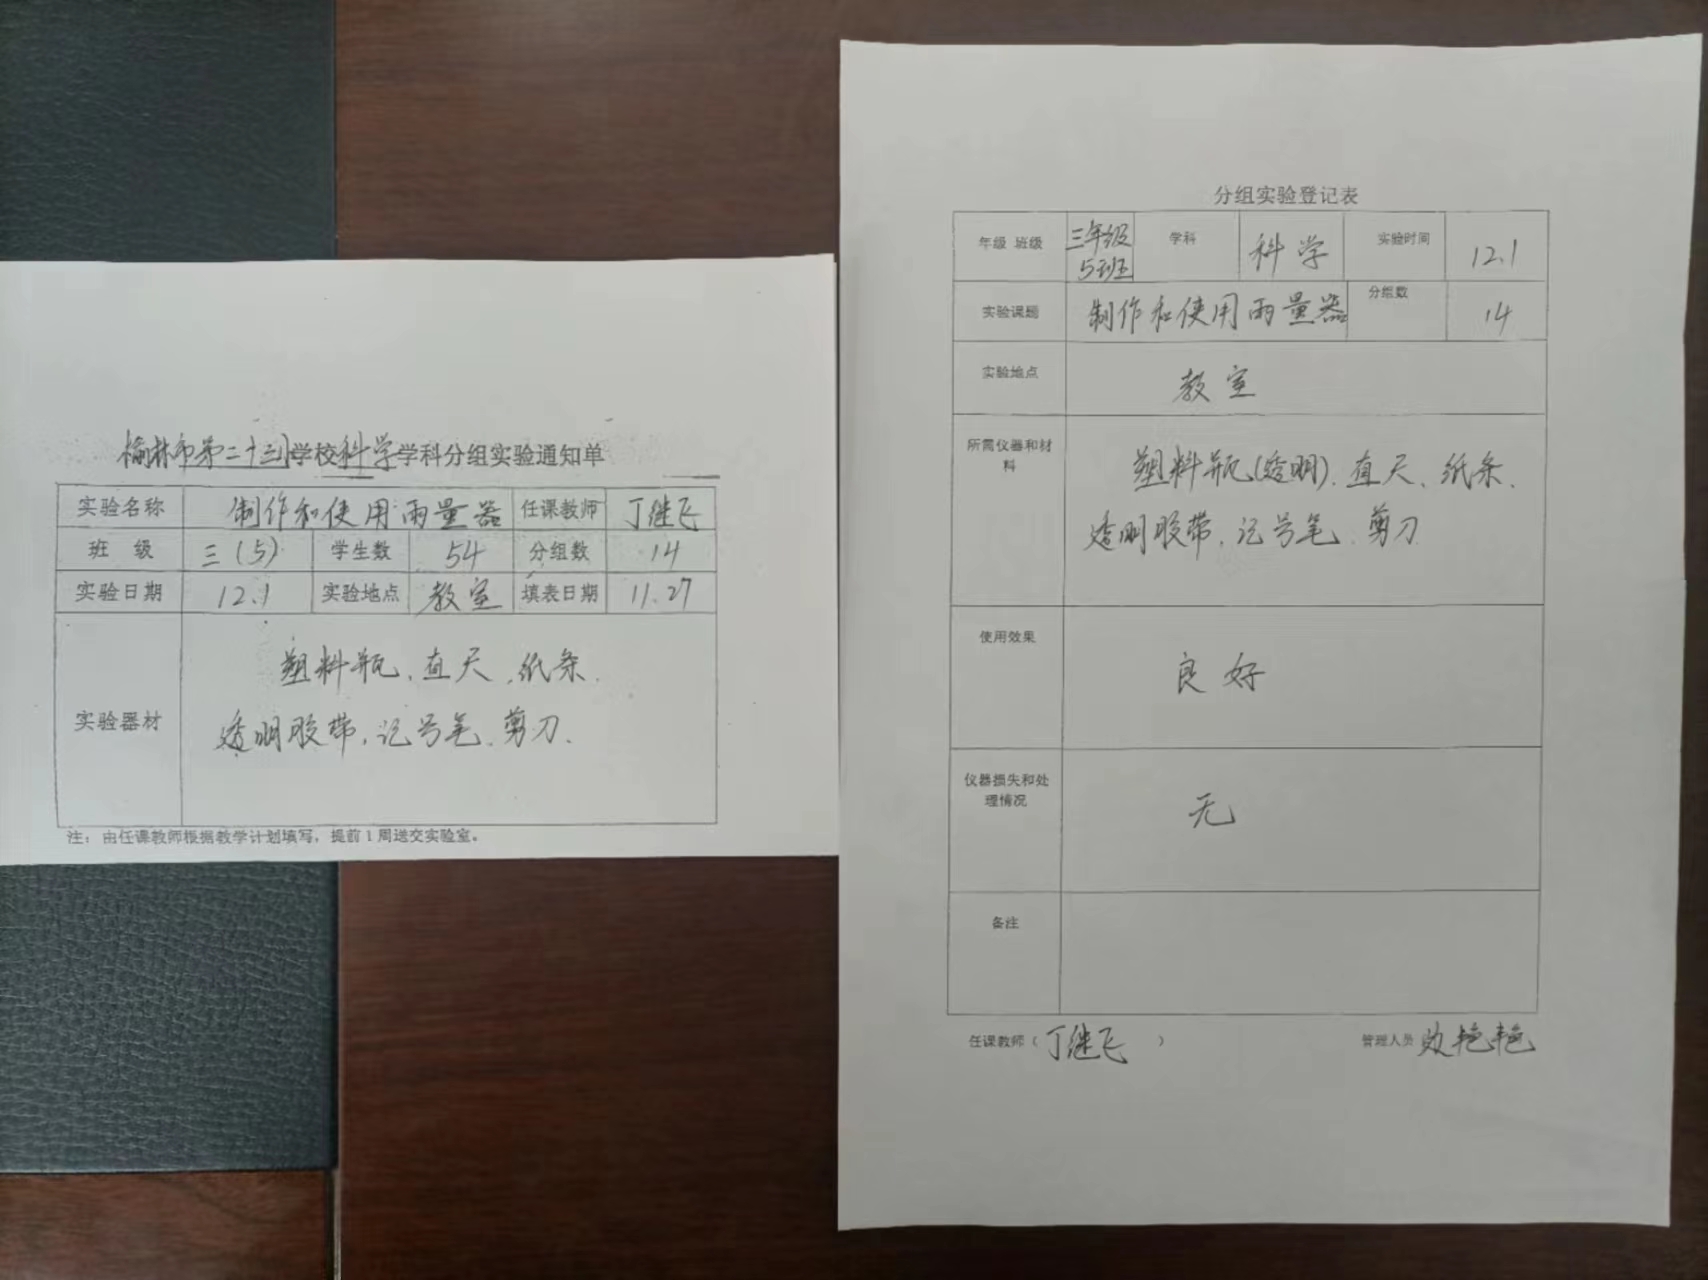 榆林市第二十三小学校科学学科分组实验通知单
实验名称 制作和使用雨量器 任课教师 丁继飞
班 级 三(5) 学生数 54 分组数 14
实验日期 12.1 实验地点 教室 填表日期 11.27
实验器材
塑料瓶、直尺、纸条、
透明胶带、记号笔、剪刀、
注：由任课教师根据教学计划填写，提前1周送交实验室。
分组实验登记表
年级 班级 三年级 5班 学科 科学 实验时间 12.1
实验课题 制作和使用雨量器 分组数 14
实验地点 教室
所需仪器和材料
塑料瓶(透明)、直尺、纸条、
透明胶带、记号笔、剪刀
使用效果 良好
仪器损失和处理情况 无
备注
任课教师（丁继飞） 管理人员 艳艳